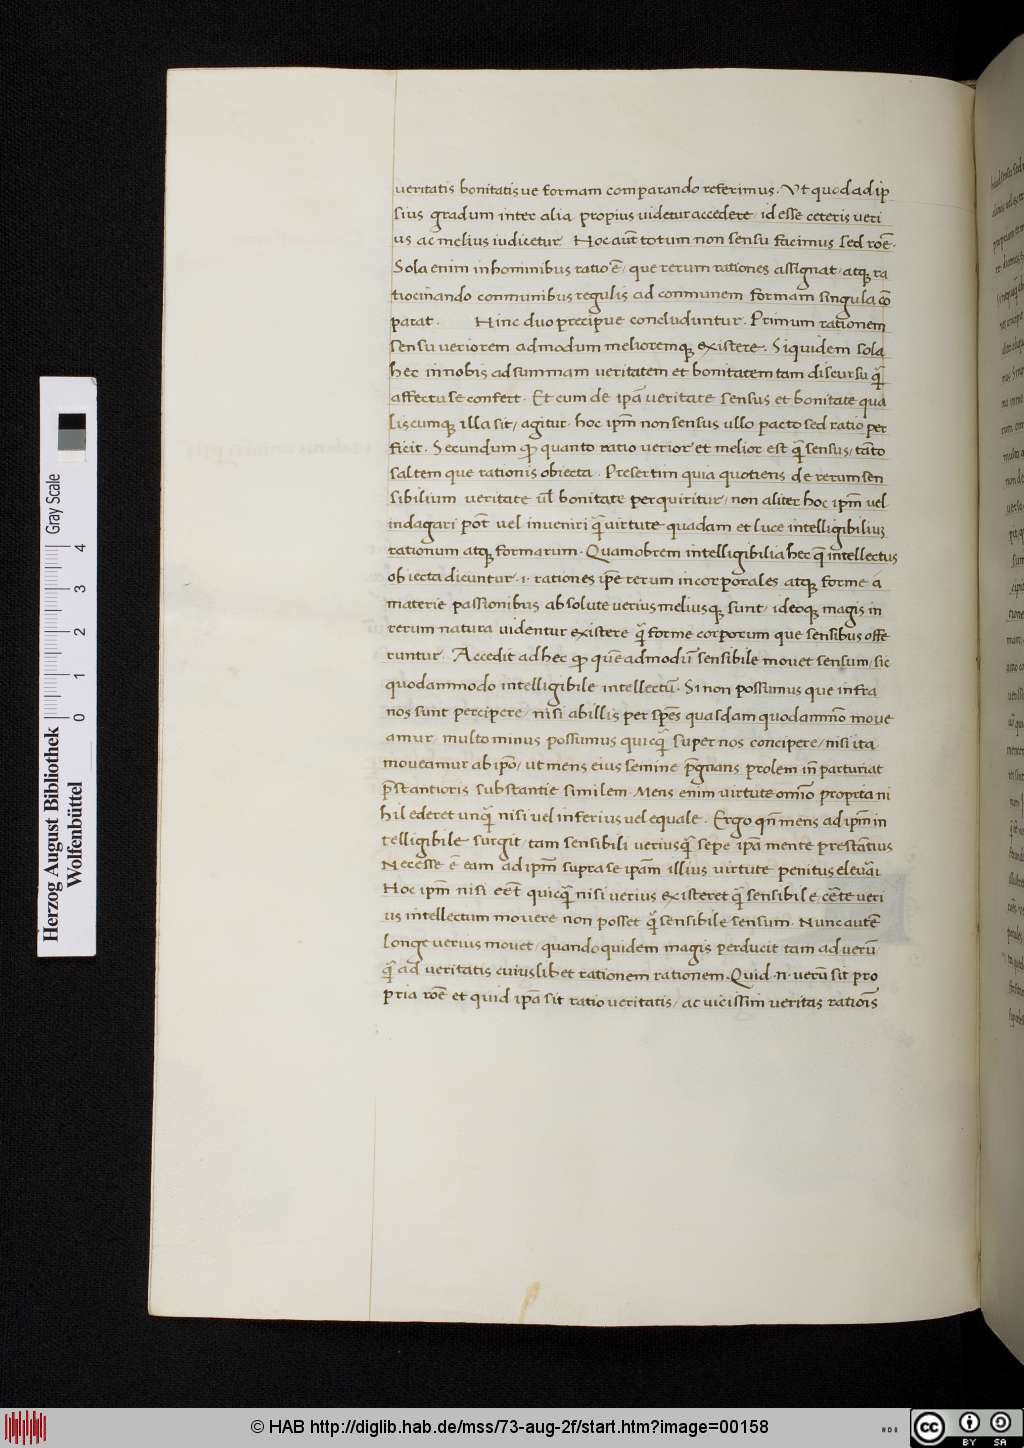 veritatis bonitatisve formam comparando referimus. Vt quod ad ip
sius gradum inter alia propius videtur accedere, id esse ceteris veri
us ac melius iudicetur Hoc aũt totum non sensu facimus sed roẽ.
Sola enim in hominibus ratio ẽ, que rerum rationes assignat, atqꝫ ra
tiocinando communibus regulis ad communem formam singula cõ
parat. Hinc duo precipue concluduntur. Primum rationem
sensu veriorem admodum melioremqꝫ existere. Siquidem sola
hec in nobis ad summam veritatem et bonitatem tam discursu q̃
affectu se confert. Et cum de ipã veritate sensus et bonitate qua
liscumqꝫ illa sit, agitur. hoc ipm̃ non sensus ullo pacto sed ratio per
ficit. Secundum ꝙ quanto ratio verior et melior est q̃ sensus, tãto
saltem que rationis obiecta. Presertim quia quotiens de rerum sen
sibilium veritate ul̃ bonitate perquiritur, non aliter hoc ipm̃ vel
indagari põt vel inveniri q̃ virtute quadam et luce intelligibiliuꝫ
rationum atqꝫ formarum. Quamobrem intelligibilia hec q̃ intellectus
obiecta dicuntur .i. rationes ipẽ rerum incorporales atqꝫ forme a
materie passionibus absolute verius meliusqꝫ sunt, ideoqꝫ magis in
rerum natura videntur existere q̃ forme corporum que sensibus offe
runtur. Accedit ad hec ꝙ quẽadmodũ sensibile movet sensum, sic
quodammodo intelligibile intellectũ. Si non possumus que infra
nos sunt percipere, nisi ab illis per spẽs quasdam quodammõ move
amur, multo minus possumus quicq̃ super nos concipere, nisi ita
moveamur ab ipõ, ut mens eius semine p̃gnans prolem in p̃arturiat
p̃stantioris substantie similem. Mens enim virtute omĩo propria ni
hil ederet unq̃ nisi vel inferius vel equale. Ergo qñ mens ad ipm̃ in
telligibile surgit, tam sensibili veriusq̃ sepe ipã mente prestãtius
Necesse ẽ eam ad ipm̃ supra se ipãm illius virtute penitus elevãi
Hoc ipm̃ nisi eẽt quicq̃ nisi verius existeret q̃ sensibile, cẽte veri
us intellectum movere non posset q̃ sensibile sensum. Nunc autẽ
longe verius movet, quandoquidem magis perducit tam ad verũ
q̃ ad veritatis cuiuslibet rationem rationem. Quid .n. verũ sit pro
pria roẽ et quid ipã sit ratio veritatis, ac vicissim veritas ratiõis
Herzog August Bibliothek
Wolfenbüttel
0 1 2 3 4
Gray Scale
© HAB http://diglib.hab.de/mss/73-aug-2f/start.htm?image=00158
HAB
cc BY SA